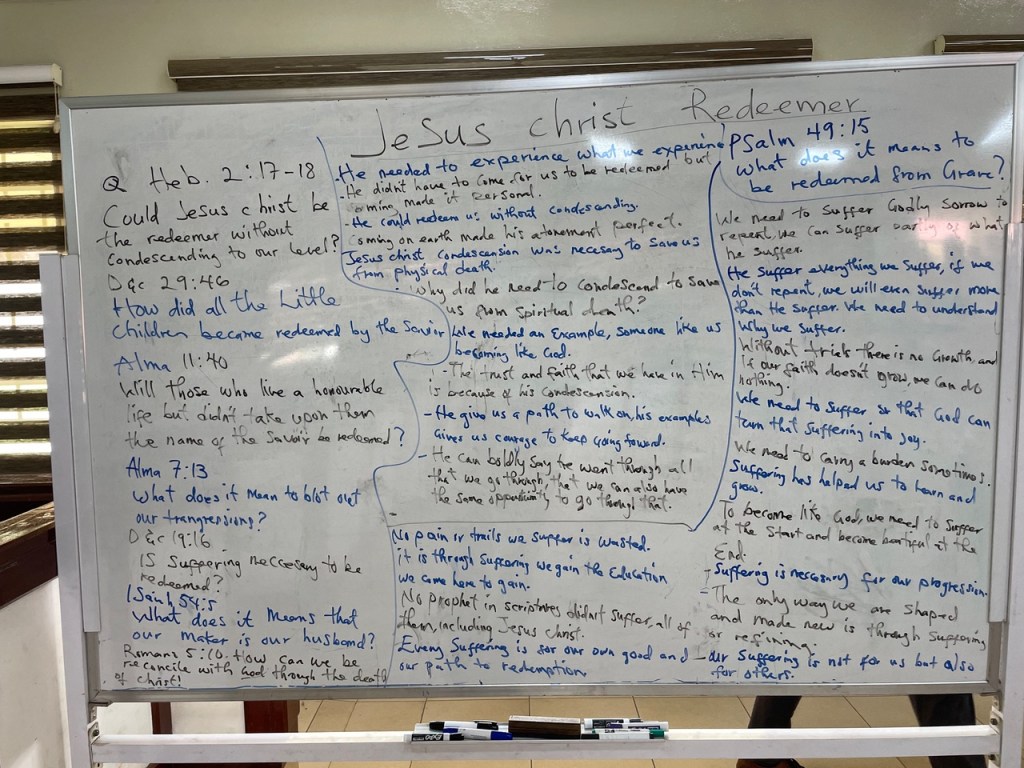 Jesus christ Redeemer
Q Heb. 2:17-18
Could Jesus christ be
the redeemer without
Condescending to our level?
D&c 29:46
How did all the Little
children become redeemed by the Savior
Alma 11:40
Will those who live a honourable
life but didn't take upon them
the name of the Savoir be redeemed?
Alma 7:13
What does it Mean to blot out
our trangressions?
D&c 19:16
Is Suffering neccesary to be
redeemed?
54:5
What does it Means that
our maker is our husband?
Romans 5:10. How can we be
reconcile with God through the death
of christ!
He needed to experience what we experience
- He didn't have to come for us to be redeemed but
coming made it personal.
- He could redeem us without condescending.
Coming on earth made his atonement perfect.
Jesus christ condescension was necesary to save us
from physical death.
Why did he need to Condescend to Save
us from Spiritual death?
We needed an Example, someone like us
becoming like God.
- The trust and faith that we have in Him
is because of his condescension.
- He give us a path to walk on, his examples
gives us courage to keep going forward.
- He can boldly say he went through all
that we go through, that we can also have
the same opportunity to go through that.
No pain or trails we suffer is wasted.
it is through Suffering we gain the Education
we come here to gain.
No prophet in scriptures didn't suffer, all of
them, including Jesus Christ.
Every Suffering is for our own good and
our path to redemption.
PSalm 49:15
What does it means to
be redeemed from Grave?
We need to Suffer Godly Sorrow to
repent, we can suffer of what
he suffer.
He Suffer everything we Suffer, if we
don't repent, we will even suffer more
than He suffer. We need to understand
Why we Suffer.
Without trials there is no Growth and
if our faith doesn't grow, we can do
nothing.
We need to Suffer so that God can
turn that Suffering into joy.
We need to carry a burden sometimes.
Suffering has helped us to learn and
grow.
To become like God, we need to suffer
at the Start and become at the
End.
- Suffering is necessary for our progression.
- The only way we are shaped
and made new is through Suffering
or refining.
- our Suffering is not for us but also
for others.
EXPO